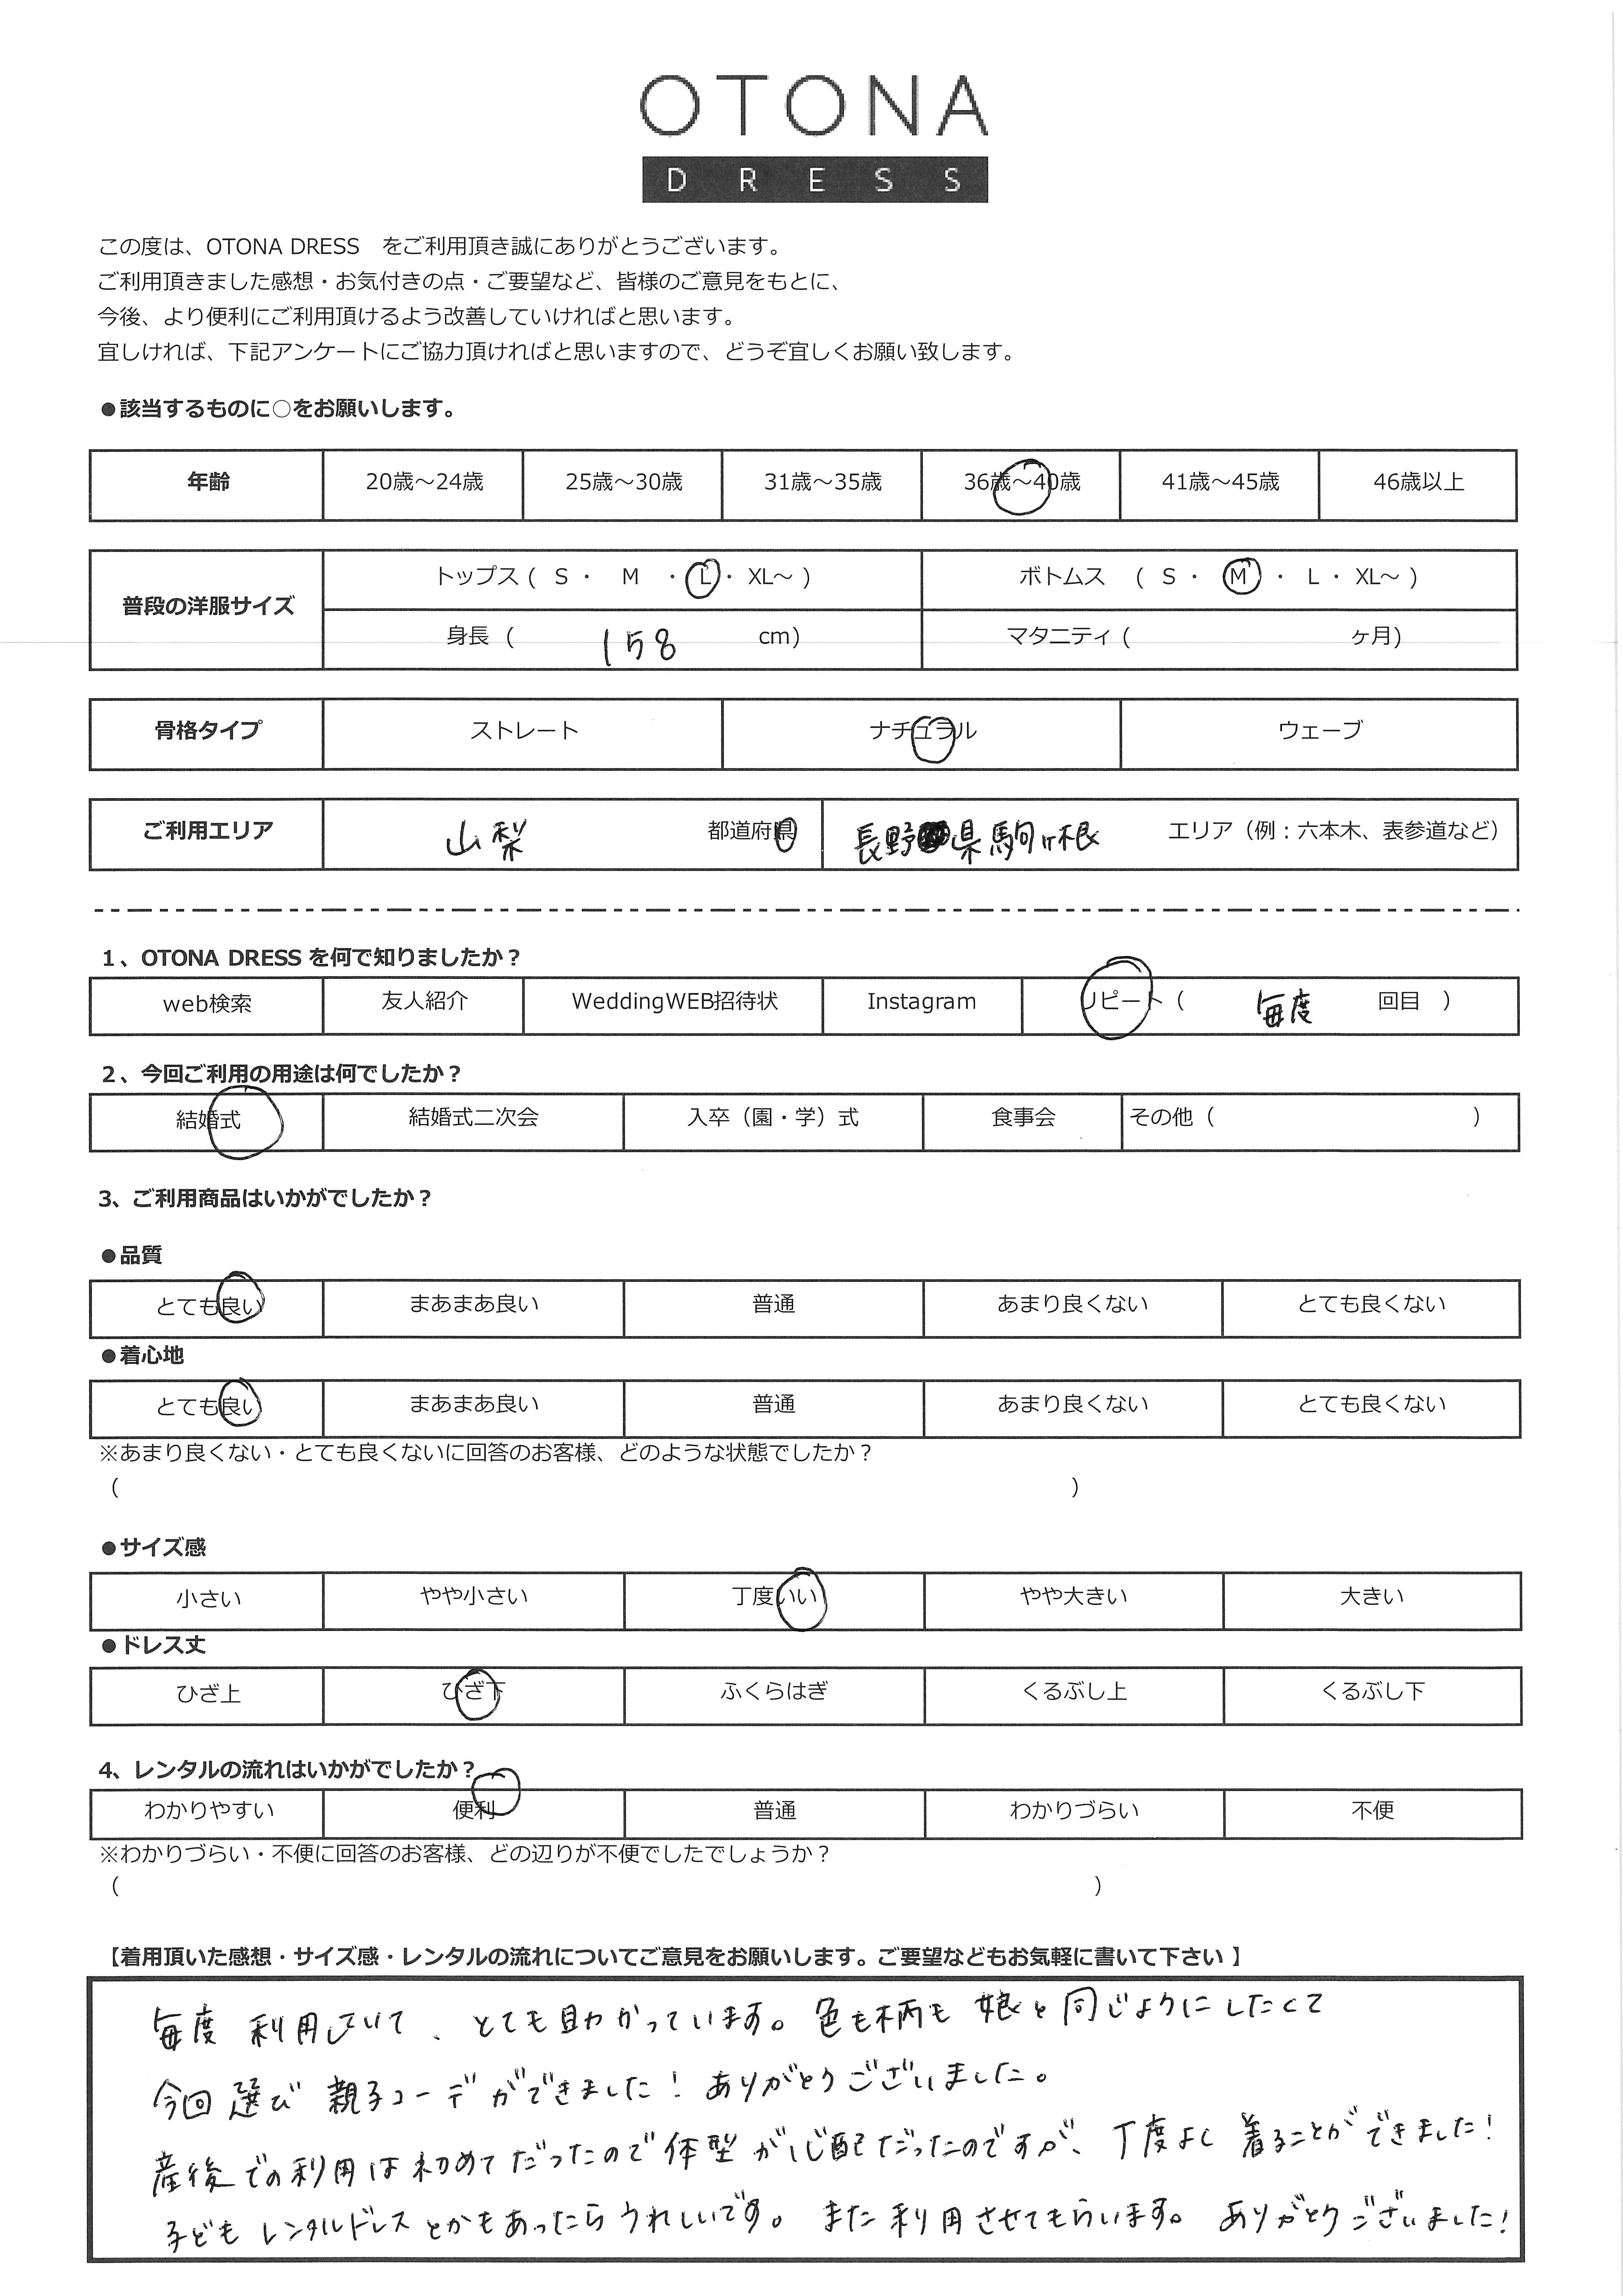 OTONA
DRESS
この度は、OTONA DRESS　をご利用頂き誠にありがとうございます。
ご利用頂きました感想・お気付きの点・ご要望など、皆様のご意見をもとに、
今後、より便利にご利用頂けるよう改善していければと思います。
宜しければ、下記アンケートにご協力頂ければと思いますので、どうぞ宜しくお願い致します。
●該当するものに○をお願いします。
年齢 20歳～24歳 25歳～30歳 31歳～35歳 36歳～40歳 41歳～45歳 46歳以上
普段の洋服サイズ トップス ( S ・ M ・ L ・ XL～ ) ボトムス ( S ・ M ・ L ・ XL～ )
身長 ( 158 cm) マタニティ ( ヶ月)
骨格タイプ ストレート ナチュラル ウェーブ
ご利用エリア 山梨 都道府県 長野県駒ヶ根 エリア（例：六本木、表参道など）
1、OTONA DRESS を何で知りましたか？
web検索 友人紹介 WeddingWEB招待状 Instagram リピート（ 毎度 回目 ）
2、今回ご利用の用途は何でしたか？
結婚式 結婚式二次会 入卒（園・学）式 食事会 その他（ ）
3、ご利用商品はいかがでしたか？
●品質
とても良い まあまあ良い 普通 あまり良くない とても良くない
●着心地
とても良い まあまあ良い 普通 あまり良くない とても良くない
※あまり良くない・とても良くないに回答のお客様、どのような状態でしたか？
（ ）
●サイズ感
小さい やや小さい 丁度いい やや大きい 大きい
●ドレス丈
ひざ上 ひざ下 ふくらはぎ くるぶし上 くるぶし下
4、レンタルの流れはいかがでしたか？
わかりやすい 便利 普通 わかりづらい 不便
※わかりづらい・不便に回答のお客様、どの辺りが不便でしたでしょうか？
（ ）
【着用頂いた感想・サイズ感・レンタルの流れについてご意見をお願いします。ご要望などもお気軽に書いて下さい 】
毎度 利用していて、とても助かっています。色も柄も 娘と同じようにしたくて
今回 選び 親子コーデができました！ありがとうございました。
産後での利用は初めてだったので体型が心配だったのですが、丁度よく 着ることができました！
子どもレンタルドレスとかもあったらうれしいです。また利用させてもらいます。ありがとうございました！